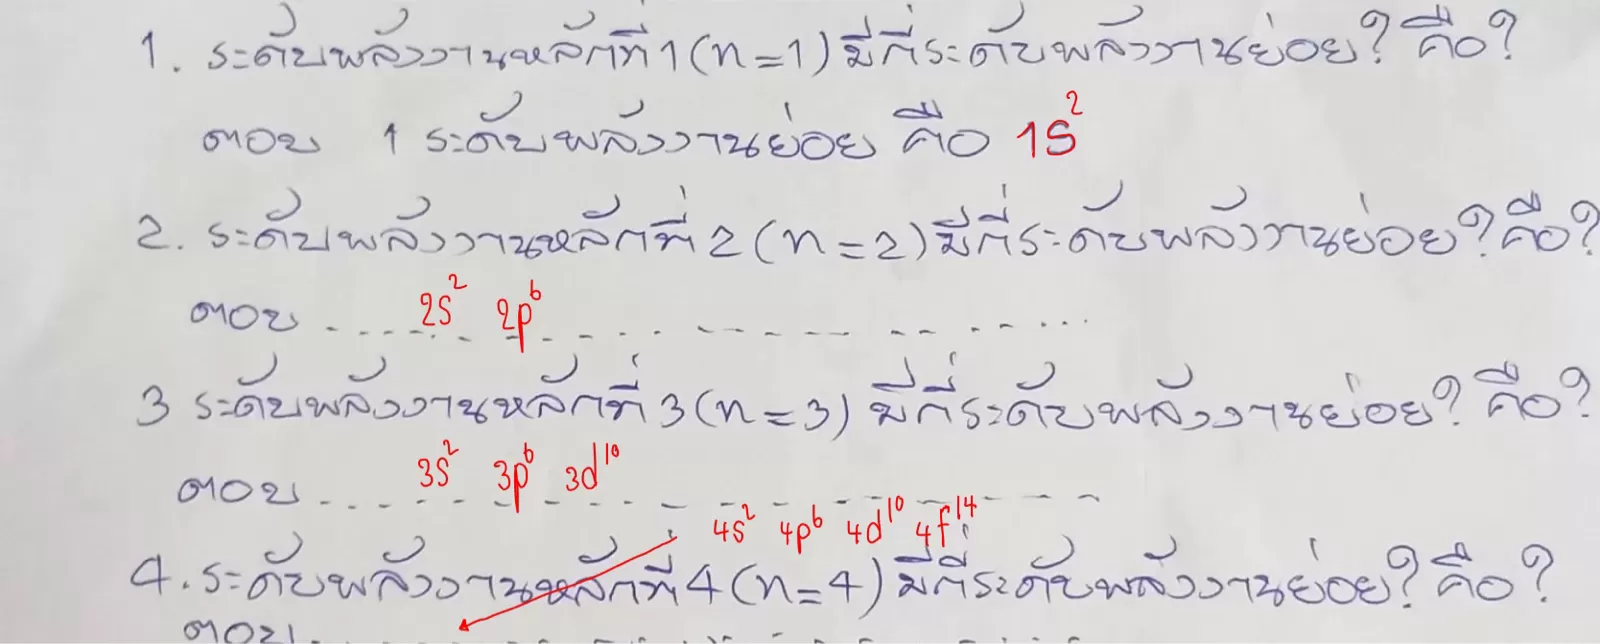 1. ระดับพลังงานหลักที่ 1 (n=1) มีกี่ระดับพลังงานย่อย? คือ?
ตอบ 1 ระดับพลังงานย่อย คือ 1s²
2. ระดับพลังงานหลักที่ 2 (n=2) มีกี่ระดับพลังงานย่อย? คือ?
ตอบ 2s² 2p⁶
3 ระดับพลังงานหลักที่ 3 (n=3) มีกี่ระดับพลังงานย่อย? คือ?
ตอบ 3s² 3p⁶ 3d¹⁰
4s² 4p⁶ 4d¹⁰ 4f¹⁴
4. ระดับพลังงานหลักที่ 4 (n=4) มีกี่ระดับพลังงานย่อย? คือ?
ตอบ